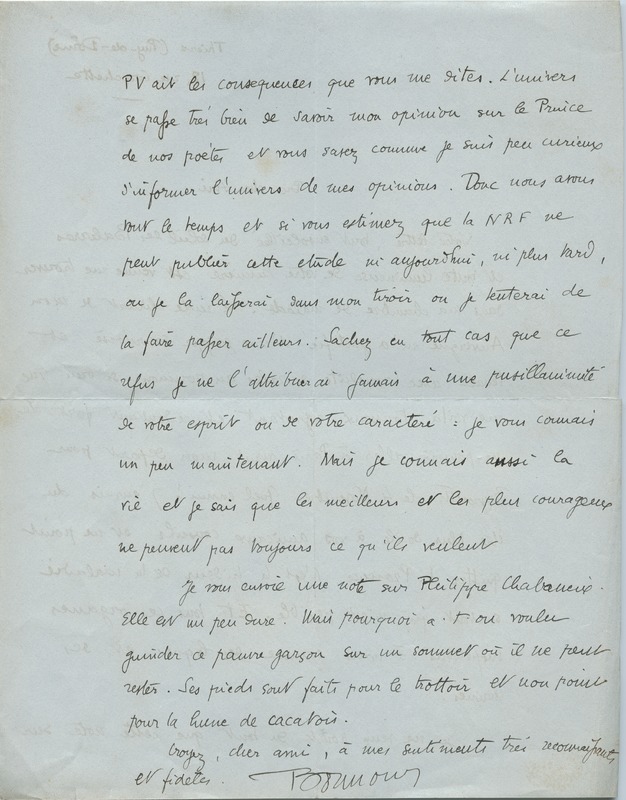 PV ait les conséquences que vous me dites. L'univers
se passe très bien de savoir mon opinion sur le Prince
de nos poètes et vous savez comme je suis peu curieux
d'informer l'univers de mes opinions. Donc nous avons
tout le temps et si vous estimez que la NRF ne
peut publier cette etude ni aujourd'hui, ni plus tard,
ou je la laisserai dans mon tiroir, ou je tenterai de
la faire passer ailleurs. Sachez en tout cas que ce
refus je ne l'attribuerai jamais à une pusillanimité
de votre esprit ou de votre caractère : je vous connais
un peu maintenant. Mais je connais aussi la
vie et je sais que les meilleurs et les plus courageux
ne peuvent pas toujours ce qu'ils veulent
Je vous envoie une note sur Philippe Chabaneix.
Elle est un peu dure. Mais pourquoi a-t-on voulu
guinder ce pauvre garçon sur un sommet où il ne peut
rester. Ses pieds sont faits pour le trottoir et non point
pour la hune de cacatois.
Croyez, cher ami, à mes sentiments très reconnaissants
et fidèles.